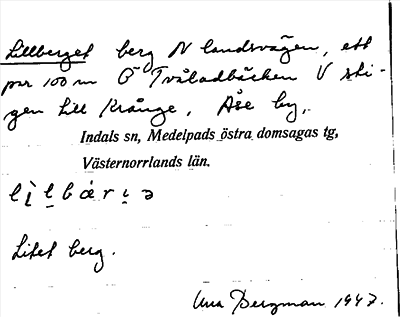 Lillberget berg N landsvägen, ett
par 100 m Ö Tvåladbäcken V sti-
gen till Krånge, Åse by,
Indals sn, Medelpads östra domsagas tg,
Västernorrlands län.
Litet berg.
Una Bergman 1947.